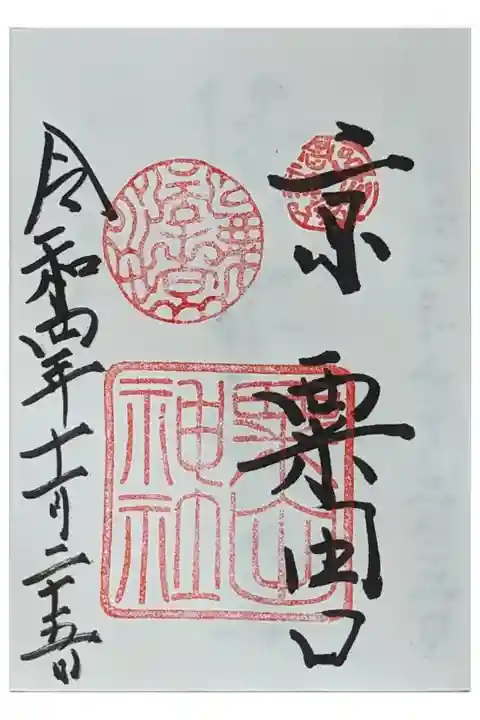 京
粟田口
神社
令和四年十一月二十五日